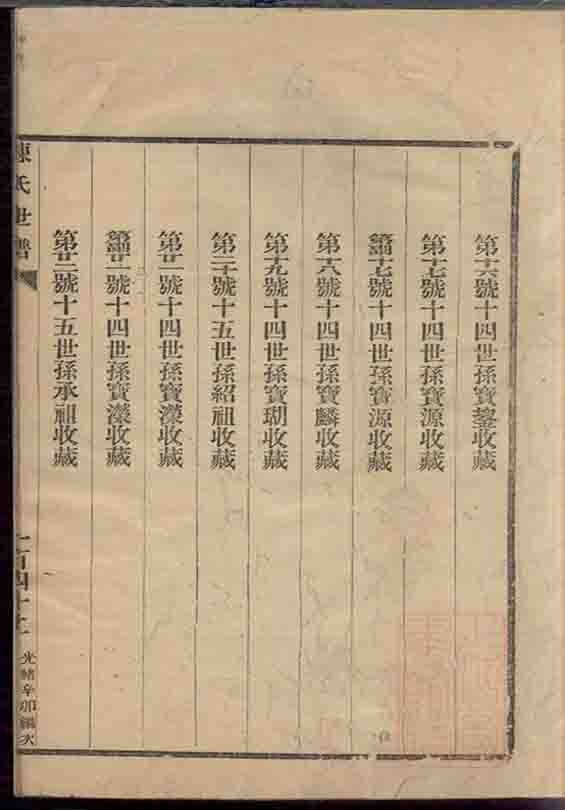 第十六號十四世孫寶鋆收藏
第十七號十四世孫寶源收藏
第副十七號十四世孫寶源收藏
第十八號十四世孫寶麟收藏
第十九號十四世孫寶瑚收藏
第二十號十五世孫紹祖收藏
第廿一號十四世孫寶濚收藏
第副廿一號十四世孫寶濚收藏
第廿二號十五世孫承祖收藏
陳氏世譜
光緒辛卯編次